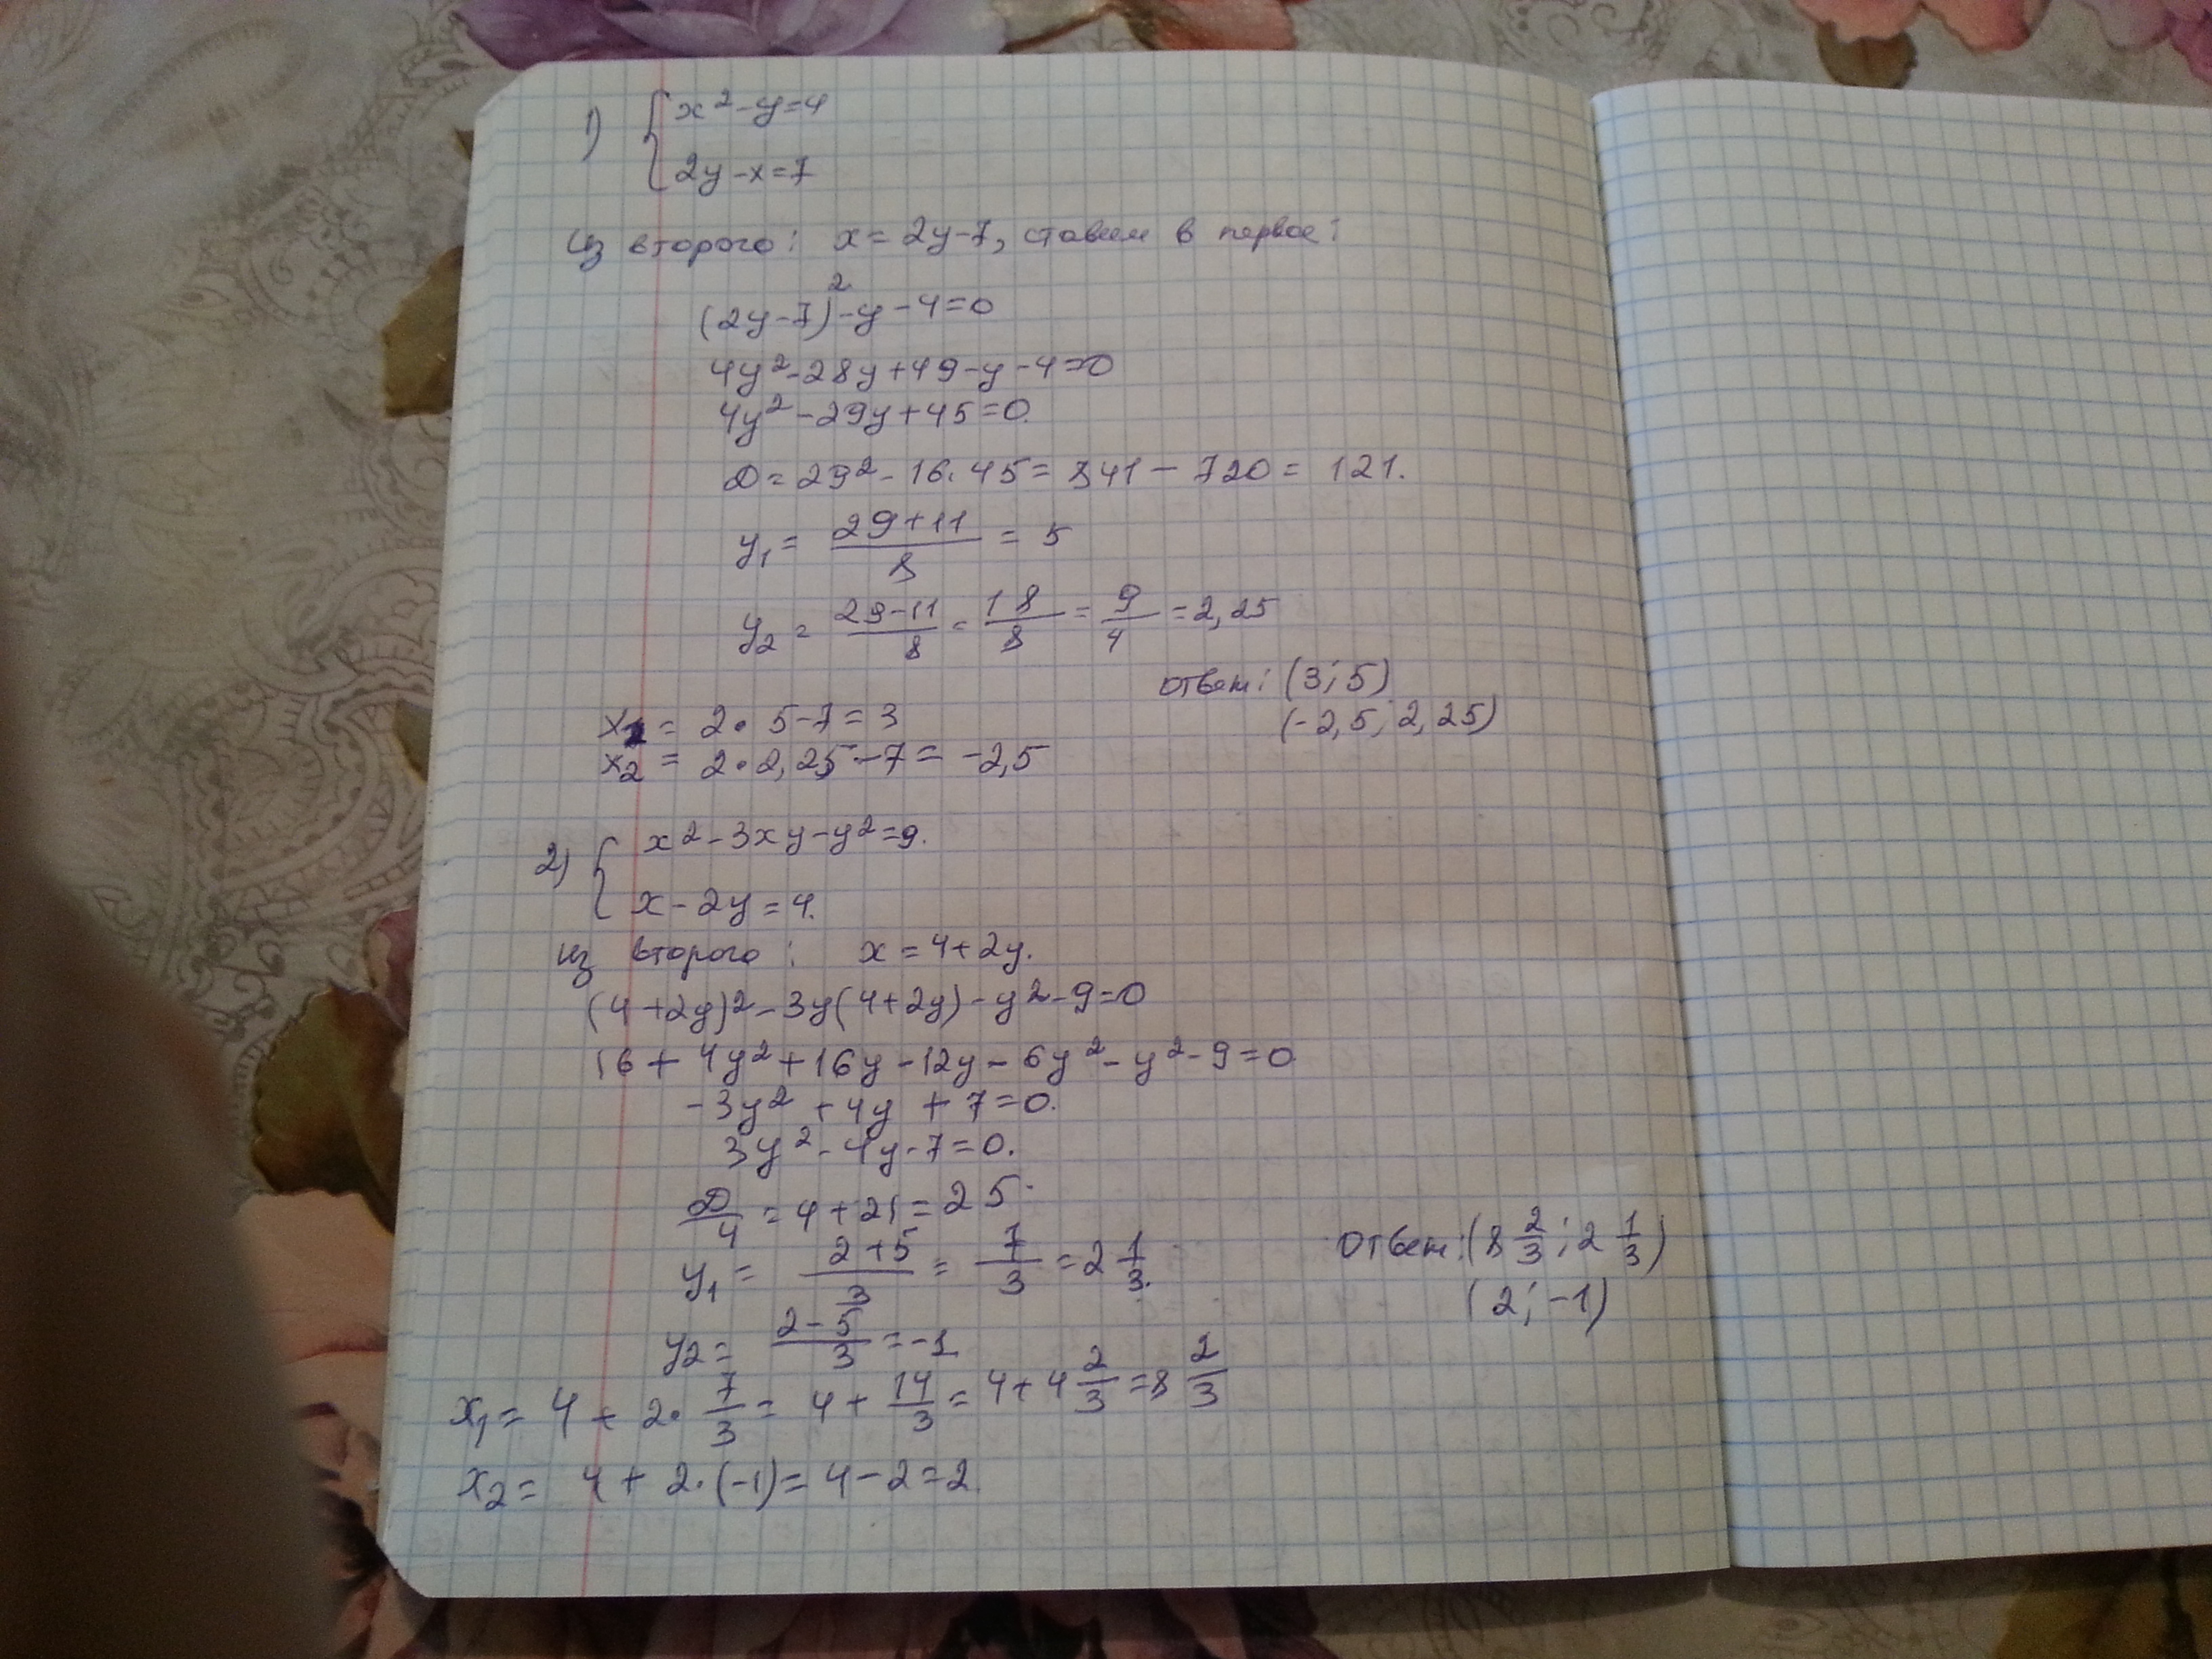 1) { x² - y = 4
2y - x = 7
Из второго: x = 2y - 7, ставим в первое:
(2y - 7)² - y - 4 = 0
4y² - 28y + 49 - y - 4 = 0
4y² - 29y + 45 = 0.
D = 29² - 16 · 45 = 841 - 720 = 121.
y₁ = (29 + 11)/8 = 5
y₂ = (29 - 11)/8 = 18/8 = 9/4 = 2,25
Ответ: (3; 5)
(-2,5; 2,25)
x₁ = 2 · 5 - 7 = 3
x₂ = 2 · 2,25 - 7 = -2,5
2) { x² - 3xy - y² = 9.
x - 2y = 4.
Из второго: x = 4 + 2y.
(4 + 2y)² - 3y(4 + 2y) - y² - 9 = 0
16 + 4y² + 16y - 12y - 6y² - y² - 9 = 0
-3y² + 4y + 7 = 0.
3y² - 4y - 7 = 0.
D/4 = 4 + 21 = 25.
y₁ = (2 + 5)/3 = 7/3 = 2 1/3.
Ответ: (8 2/3; 2 1/3)
(2; -1)
y₂ = (2 - 5)/3 = -1
x₁ = 4 + 2 · 7/3 = 4 + 14/3 = 4 + 4 2/3 = 8 2/3
x₂ = 4 + 2 · (-1) = 4 - 2 = 2.